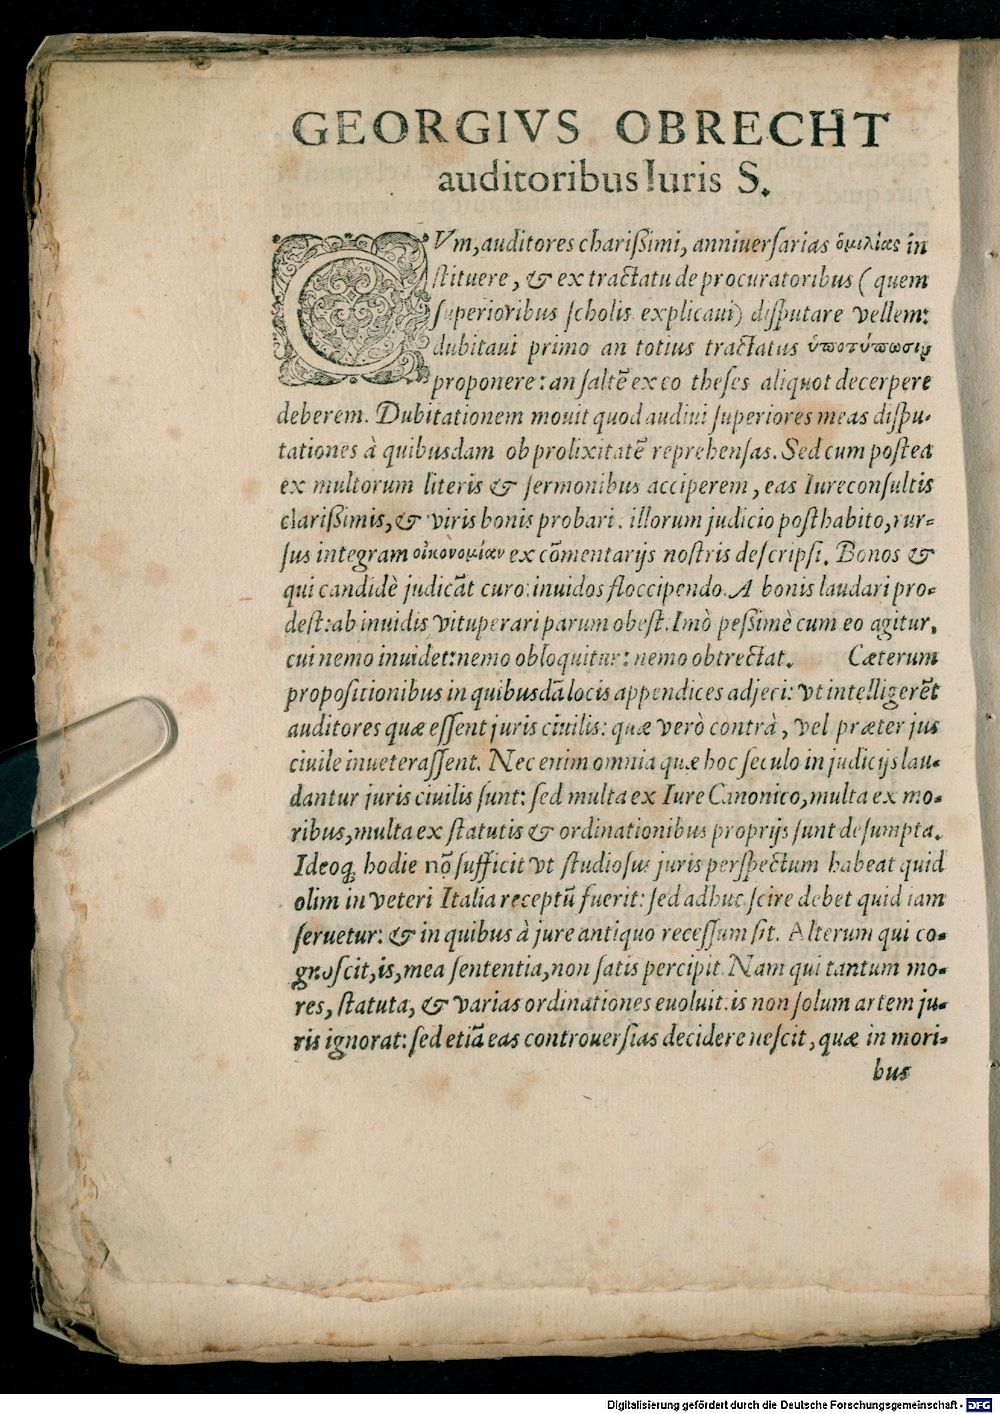 GEORGIVS OBRECHT
auditoribus Iuris S.
CVm, auditores charißimi, anniuersarias ὁμιλίας in
stituere, & ex tractatu de procuratoribus (quem
superioribus scholis explicaui) disputare vellem:
dubitaui primo an totius tractatus ὑποτύπωσιν
proponere: an saltẽ ex eo theses aliquot decerpere
deberem. Dubitationem mouit quod audiui superiores meas dispu-
tationes à quibusdam ob prolixitatẽ reprehensas. Sed cum postea
ex multorum literis & sermonibus acciperem, eas Iureconsultis
clarißimis, & viris bonis probari. illorum judicio posthabito, rur-
sus integram οἰκονομίαν ex cõmentarijs nostris descripsi. Bonos &
qui candidè judicãt curo: inuidos floccipendo. A bonis laudari pro-
dest: ab inuidis vituperari parum obest. Imò peßimè cum eo agitur,
cui nemo inuidet: nemo obloquitur: nemo obtrectat. Cæterum
propositionibus in quibusdã locis appendices adjeci: vt intelligerẽt
auditores quæ essent juris ciuilis: quæ verò contrà, vel præter jus
ciuile inueterassent. Nec enim omnia quæ hoc seculo in judicijs lau-
dantur juris ciuilis sunt: sed multa ex Iure Canonico, multa ex mo-
ribus, multa ex statutis & ordinationibus proprijs sunt desumpta.
Ideoq; hodie nõ sufficit vt studiosus juris perspectum habeat quid
olim in veteri Italia receptũ fuerit: sed adhuc scire debet quid iam
seruetur: & in quibus à jure antiquo recessum sit. Alterum qui co-
gnoscit, is, mea sententia, non satis percipit. Nam qui tantum mo-
res, statuta, & varias ordinationes euoluit: is non solum artem ju-
ris ignorat: sed etiã eas controuersias decidere nescit, quæ in mori-
bus
Digitalisierung gefördert durch die Deutsche Forschungsgemeinschaft - DFG